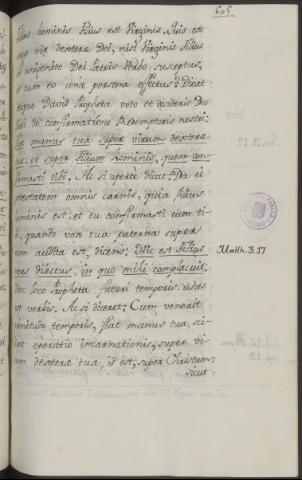 605
Filius hominis Filius est Virginis. Quis est
vir dexteræ Dei, nisi Virginis Filius
unigenito Dei Patris Verbo susceptus,
cum eo una persona effectus? Dicat
ergo David Propheta voto et desiderio
de confirmatione Redemptoris nostri:
Fiat manus tua super virum dexteræ
tuæ, et super Filium hominis, quem con-
firmasti tibi. Ac si aperte dicat: Da ei
potestatem omnis carnis, quia Filius
hominis est: et tu confirmasti eum ti-
bi, quando vox tua paterna super
eum audita est, dicens: Hic est Filius
meus dilectus, in quo mihi complacuit.
Matth. 3. 17
hoc loco Propheta futuri temporis
est verbis. Ac si diceret: Cum venerit
plenitudo temporis, fiat manus tua, sci-
licet operatio incarnationis, super vi-
rum dexteræ tuæ, id est, super Christum:
sicut